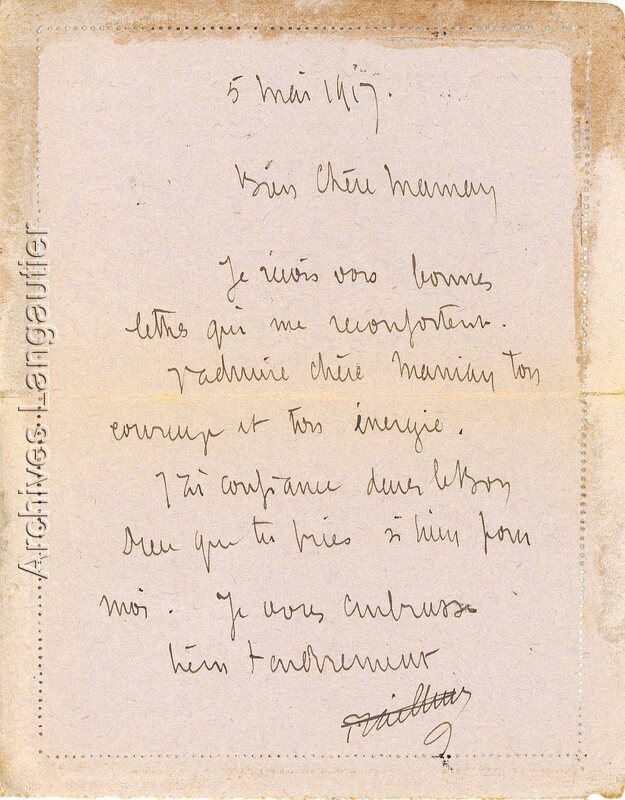 5 Mai 1917.
Bien Chère Maman
Je reçois vos bonnes
lettres qui me reconfortent.
J'admire chère Maman ton
courage et ton énergie.
J'ai confiance dans le Bon
Dieu que tu pries si bien pour
moi. Je vous embrasse
bien tendrement
Archives Langautier